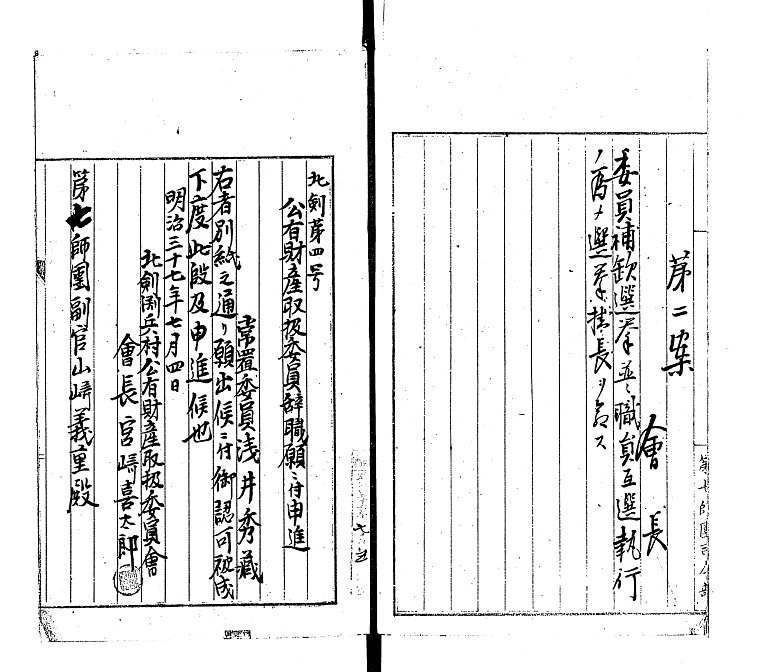 第二案
會長
委員補欽選挙並ニ職員互選執行
ノ為メ選挙
長ヲ命ス
北剣第四号
公有財産取扱委員辞職願ニ付申進
常置委員浅井秀藏
右者別紙之通リ願出候ニ付御認可被成
下度此段及申進候也
明治三十七年七月四日
北剣淵兵村公有財産取扱委員會
會長宮崎喜太郎
第七師團副官山崎義重殿